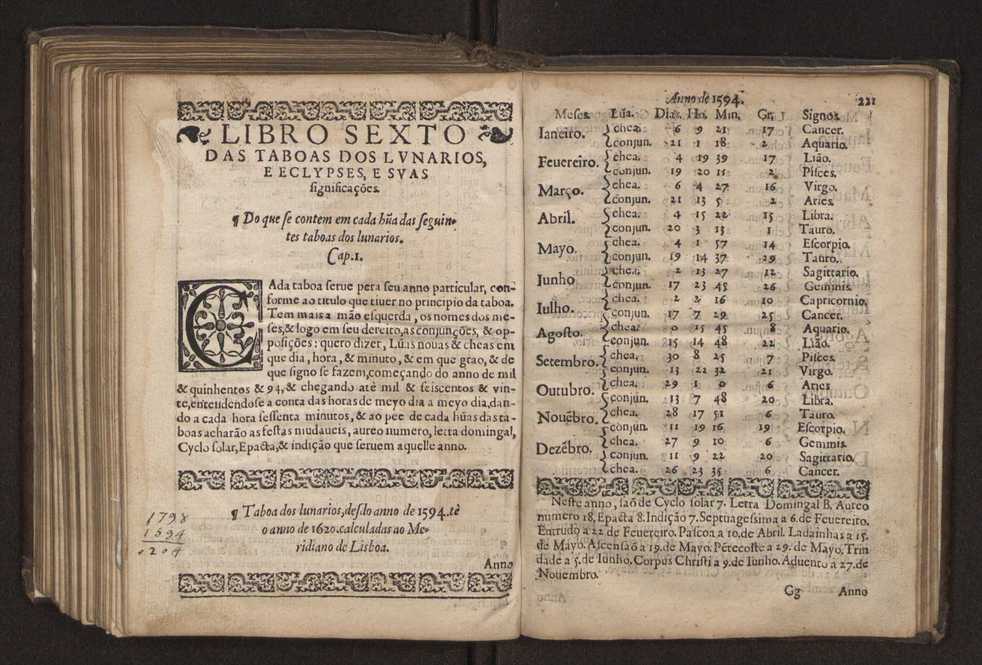 LIBRO SEXTO
DAS TABOAS DOS LVNARIOS,
E ECLYPSES, E SVAS
significações.
¶ Do que se contem em cada hũa das seguin-
tes taboas dos lunarios.
Cap.1.
CAda taboa serue pera seu anno particular, con-
forme ao titulo que tiuer no principio da taboa.
Tem mais a mão esquerda, os nomes dos me-
ses,& logo em seu dereito,as conjunções, & op-
posições: quero dizer, Lũas nouas & cheas em
que dia, hora, & minuto, & em que grao, & de
que signo se fazem,começando do anno de mil
& quinhentos & 94,& chegando atè mil & seiscentos & vin-
te,entendendose a conta das horas de meyo dia a meyo dia,dan-
do a cada hora sessenta minutos, & ao pee de cada hũas das ta-
boas acharão as festas mudaueis, aureo numero, letra domingal,
Cyclo solar,Epacta,& indição que seruem aquelle anno.
1798
1594
204
¶ Taboa dos lunarios,desdo anno de 1594.tè
o anno de 1620.calculadas ao Me-
ridiano de Lisboa.
Anno
Anno de 1594. 221
Meses. Lũa. Dias. Ho. Min. Gr. Signos.
Ianeiro. chea. 6 9 21 17 Cancer.
conjun. 21 1 18 2 Aquario.
Feuereiro. chea. 4 19 39 17 Lião.
conjun. 19 20 11 2 Pisces.
Março. chea. 6 4 27 16 Virgo.
conjun. 21 13 5 2 Aries.
Abril. chea. 4 15 22 15 Libra.
conjun. 20 3 13 1 Tauro.
Mayo. chea. 4 1 57 14 Escorpio.
conjun. 19 14 37 29 Tauro.
Iunho chea. 2 13 27 12 Sagittario.
conjun. 17 23 45 26 Geminis.
Iulho. chea. 2 2 16 10 Capricornio.
conjun. 17 7 29 25 Cancer.
Agosto. chea. 0 15 45 8 Aquario.
conjun. 15 14 48 22 Lião.
Setembro. chea. 30 8 25 7 Pisces.
conjun. 13 22 32 21 Virgo.
Outubro. chea. 29 1 0 6 Aries
conjun. 13 7 48 20 Libra.
Nouẽbro. chea. 28 17 51 6 Tauro.
conjun. 11 19 16 19 Escorpio.
Dezẽbro. chea. 27 9 10 6 Geminis.
conjun. 11 9 22 20 Sagittario.
chea. 26 23 35 6 Cancer.
Neste anno, saõ de Cyclo solar 7. Letra Domingal B. Aureo
numero 18, Epacta 8. Indição 7. Septuagessima a 6. de Feuereiro.
Entrudo a 22 de Feuereiro. Pascoa a 10. de Abril. Ladainhas a 15.
de Mayo. Ascensaõ a 19. de Mayo. Pẽtecoste a 29. de Mayo. Trin
dade a 5. de Iunho. Corpus Christi a 9. de Iunho. Aduento a 27. de
Nouembro.
Gg Anno